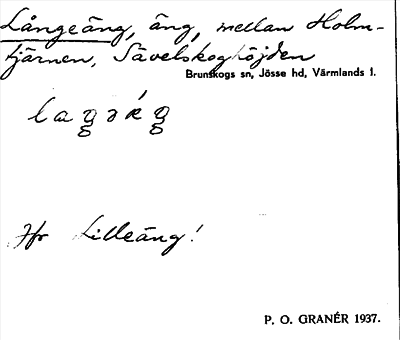 Långeäng, äng, mellan Holm-
tjärnen, Sävelskoghöjden
Brunskogs sn, Jösse hd, Värmlands l.
Jfr Lilleäng!
P. O. GRANÉR 1937.